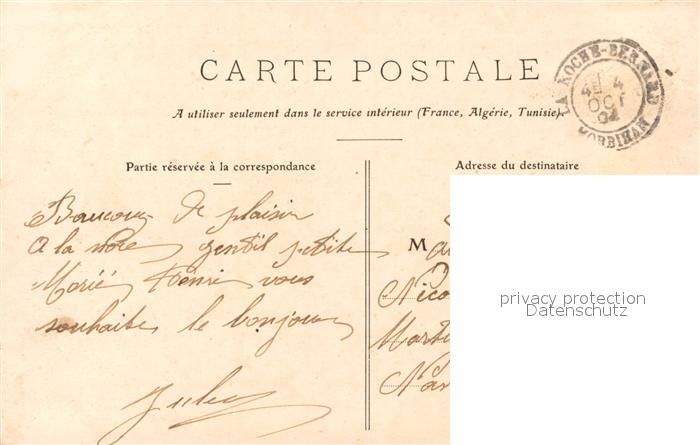 CARTE POSTALE
LA ROCHE-BERNARD
4
OCT
04
MORBIHAN
A utiliser seulement dans le service intérieur (France, Algérie, Tunisie).
Partie réservée à la correspondance
Adresse du destinataire
Baucoup de plaisir
a la noce gentil petite
Marié Henri vous
souhaite le bonjour
Jules
M
Nico
Marti
Nan
privacy protection
Datenschutz